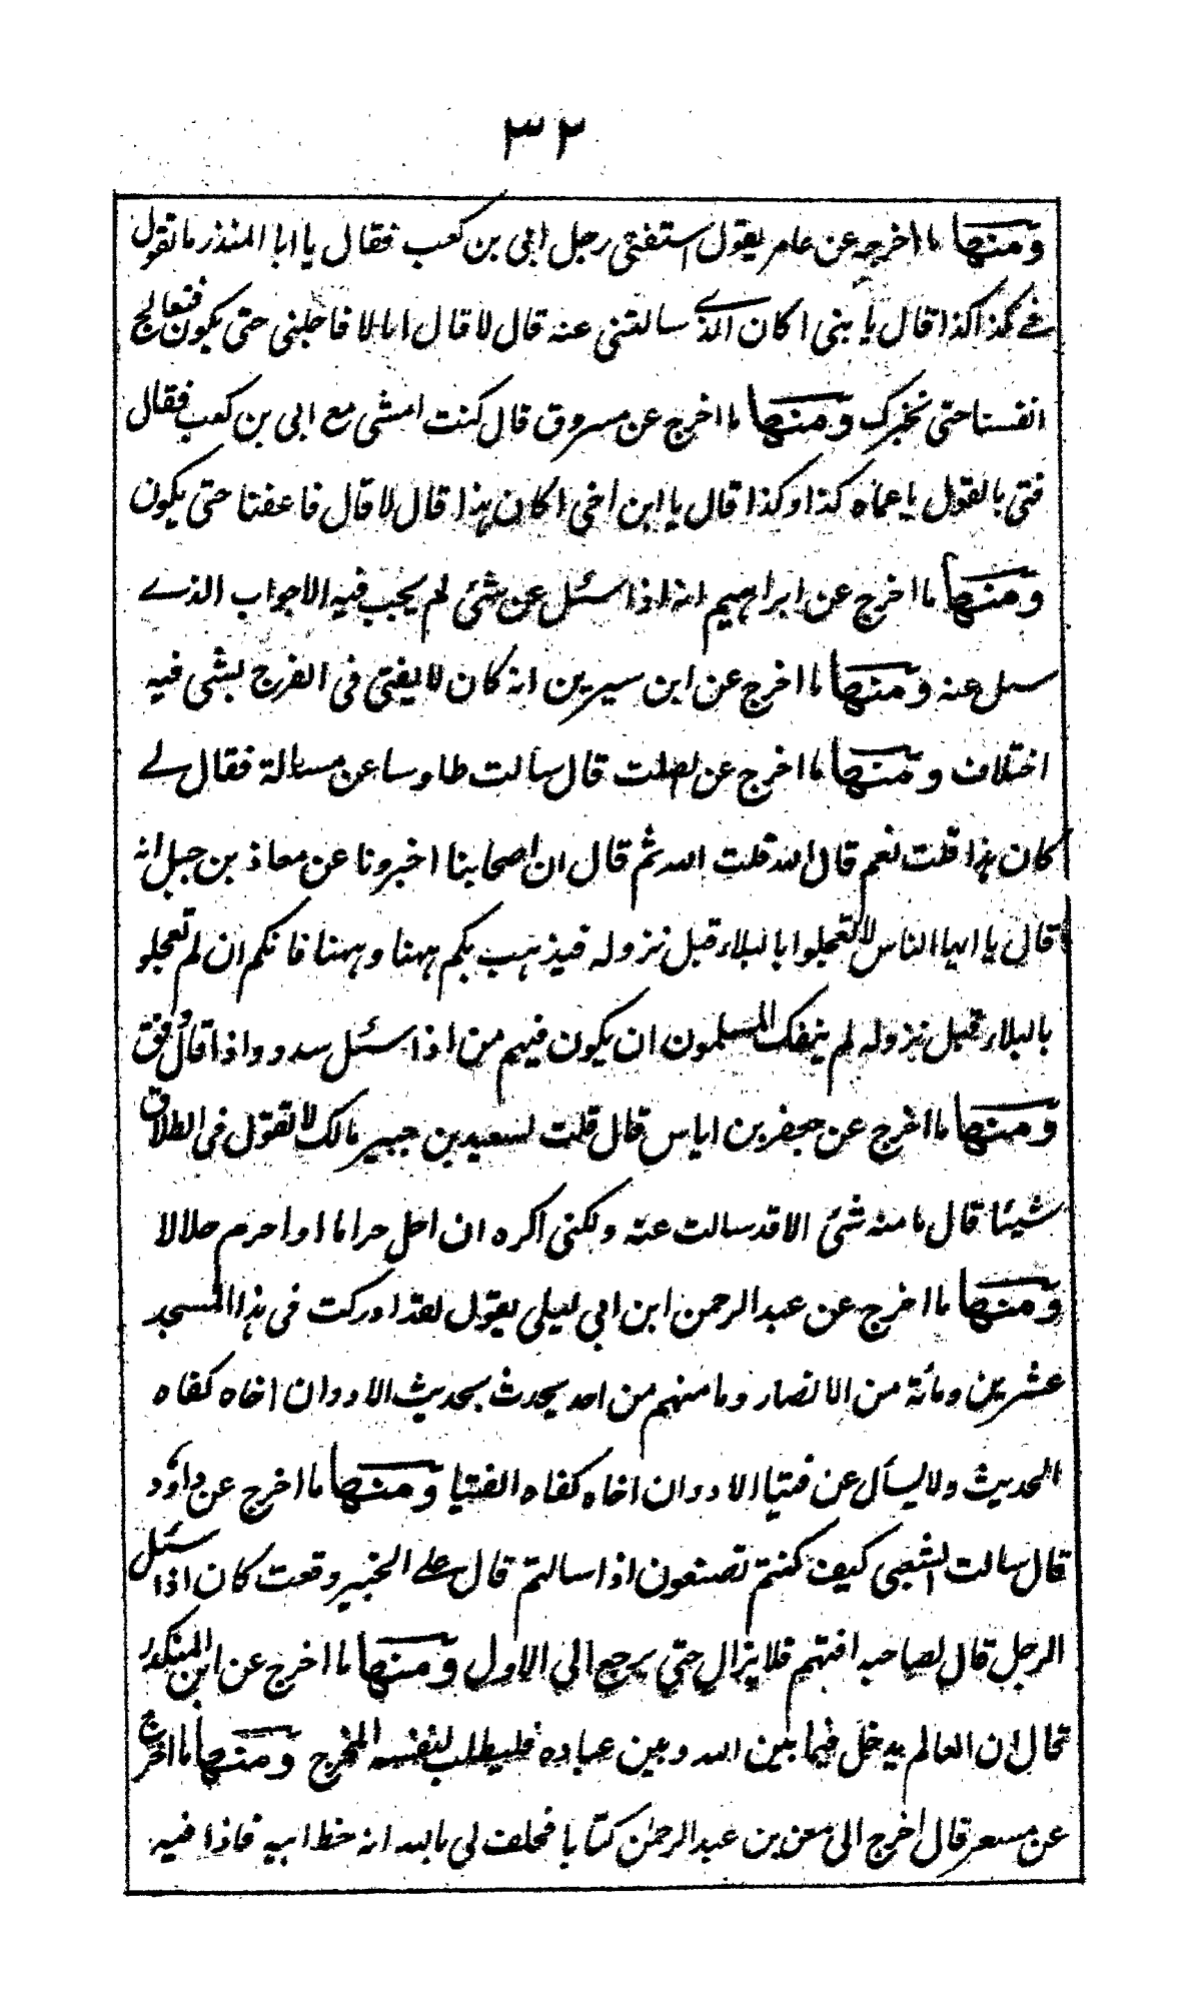 ٣٢
ومنها ما اخرجه عن عامر يقول استفتى رجل ابي بن كعب فقال يا ابا المنذر ما تقول
في كذا كذا قال يا بنى ا كان الذي سالتنى عنه قال لا قال اما لا فاجلنى حتى يكون فنعالج
انفسنا حتى نخبرك ومنها ما اخرج عن مسروق قال كنت امشى مع ابى بن كعب فقال
فتى بالقول يا عماه كذا وكذا قال يا ابن اخى اكان هذا قال لا قال فاعفنا حتى يكون
ومنها ما اخرج عن ابراهيم انه اذا سئل عن شئ لم يجب فيه الا جواب الذے
سئل عنه ومنها ما اخرج عن ابن سيرين انه كان لا يفتى فى الفرج بشى فيه
اختلاف ومنها ما اخرج عن الصلت قال سألت طاوسا عن مسالة فقال لے
كان هذا قلت نعم قال الله قلت الله ثم قال ان اصحابنا اخبرونا عن معاذ بن جبل انه
قال يا ايها الناس لا تعجلوا بالبلاء قبل نزوله فيذهب بكم ههنا وههنا فانكم ان لم تعجلو
بالبلاء قبل نزوله لم ينفك المسلمون ان يكون فيهم من اذا سئل سدد واذا قال وفق
ومنها ما اخرج عن جعفر بن اياس قال قلت لسعيد بن جبير مالك لا تقول فى الطلاق
شيئا قال ما منه شئ الا قد سالت عنه ولكنى اكره ان احل حراما او احرم حلالا
ومنها ما اخرج عن عبد الرحمن ابن ابي ليلى يقول لقد ادركت فى هذا المسجد
عشرين ومائة من الانصار وما منهم من احد يحدث بحديث الا ودان اخاه كفاه
الحديث ولا يسأل عن فتيا الا ودان اخاه كفاه الفتيا ومنها ما اخرج عن داؤد
قال سالت الشعبى كيف كنتم تصنعون اذا سالتم قال على الخبير وقعت كان اذا سئل
الرجل قال لصاحبه افتهم فلا يزال حتى يرجع الى الاول ومنها ما اخرج عن ابن المنكدر
قال ان العالم يدخل فيما بين الله وبين عباده فليطلب لنفسه المخرج ومنها ما اخرج
عن مسعر قال اخرج الى معن بن عبد الرحمن كتابا فحلف لى بالله انه خط ابيه فاذا فيه